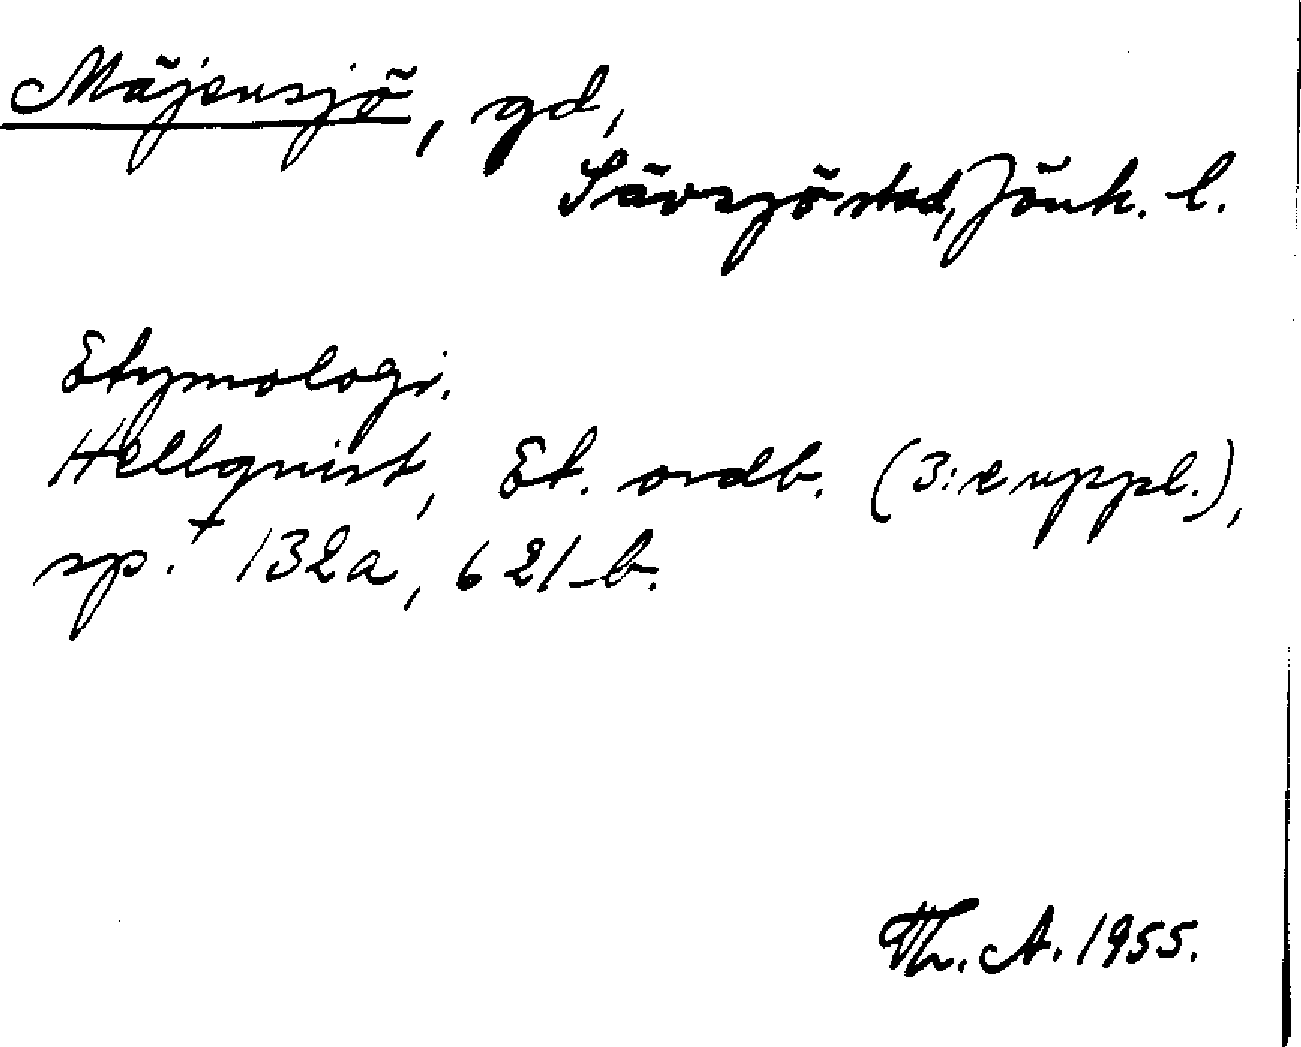 Mäjensjö, gd,
Sävsjö stad, Jönk. l.
Etymologi.
Hellqvist, Et. ordb. (3:e uppl.),
sp. 132a, 621 b.
Th. A. 1955.